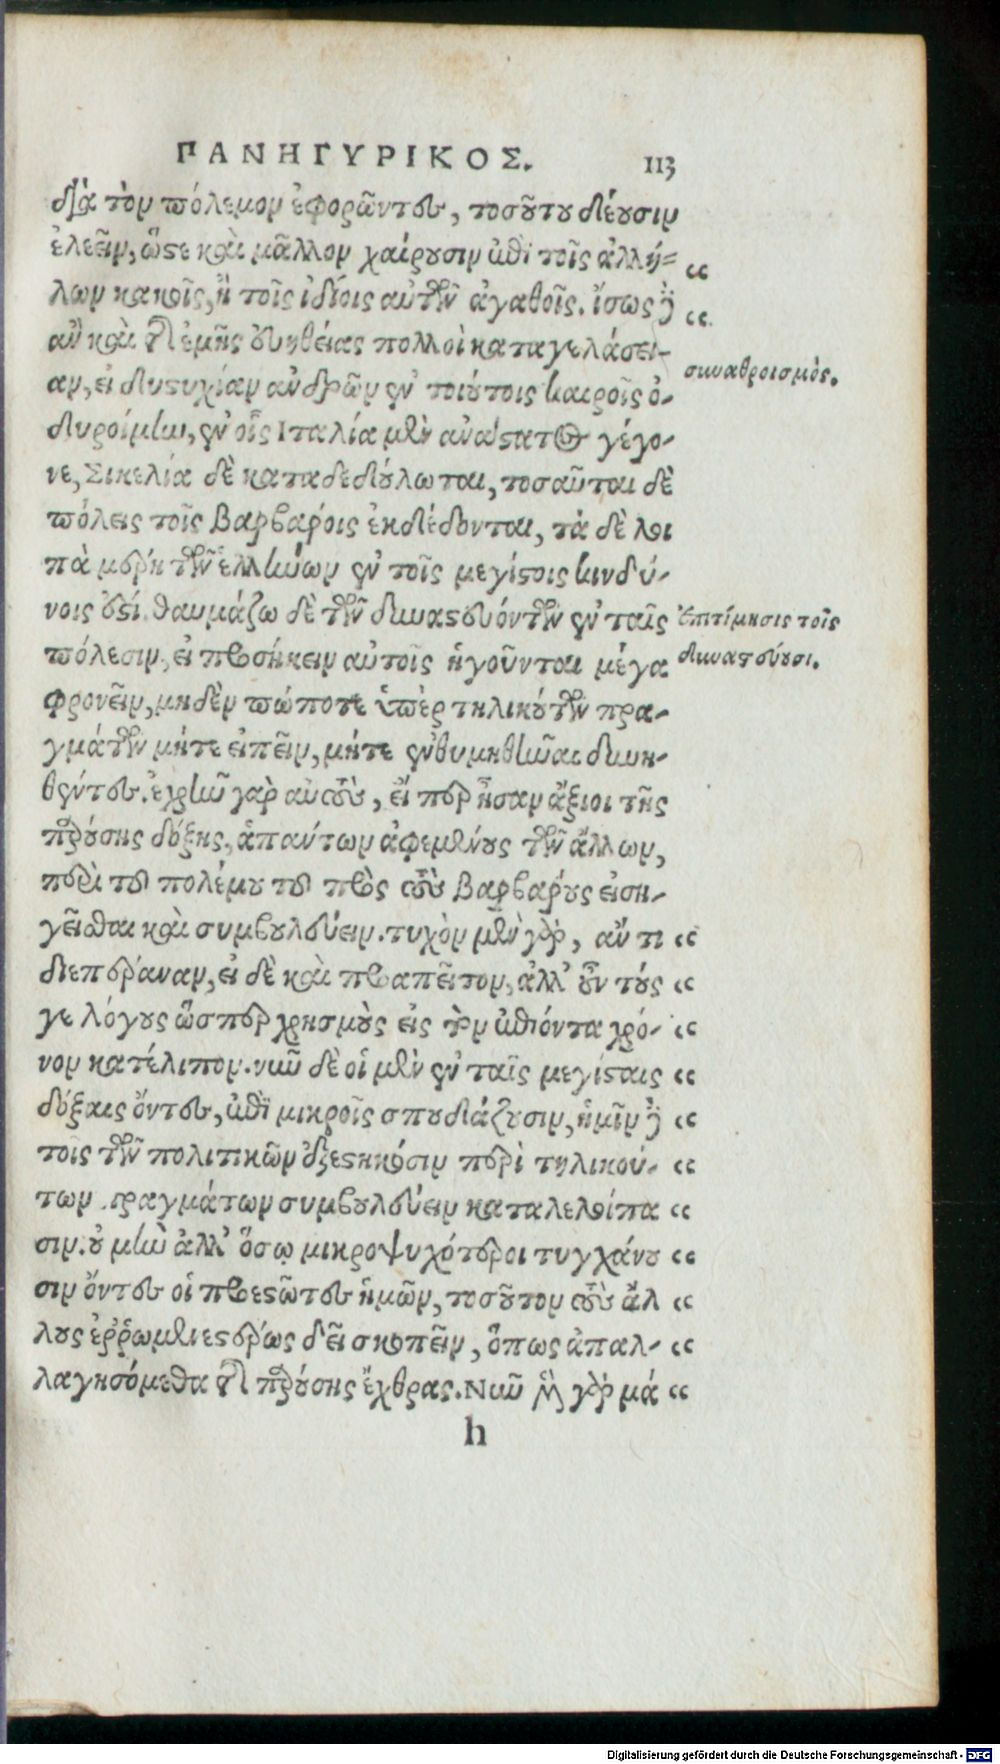 ΠΑΝΗΓΥΡΙΚΟΣ. 113
διὰ τὸν πόλεμον ἐφορῶντες, τοσούτου δέουσιν
ἐλεεῖν, ὥστε καὶ μᾶλλον χαίρουσιν ἐπὶ τοῖς ἀλλή=
λων κακοῖς, ἢ τοῖς ἰδίοις αὑτῶν ἀγαθοῖς. ἴσως δ'
ἂν καὶ τῆς ἐμῆς εὐηθείας πολλοὶ καταγελάσει-
αν, εἰ δυστυχίαν ἀνδρῶν ἐν τοιούτοις καιροῖς ὀ-
δυροίμην, ἐν οἷς Ἰταλία μὲν ἀνάστατος γέγο-
νε, Σικελία δὲ καταδεδούλωται, τοσαῦται δὲ
πόλεις τοῖς βαρβάροις ἐκδέδονται, τὰ δὲ λοι
πὰ μέρη τῶν ἑλλήνων ἐν τοῖς μεγίστοις κινδύ-
νοις ἐστί. θαυμάζω δὲ τῶν δυναστευόντων ἐν ταῖς
πόλεσιν, εἰ προσήκειν αὐτοῖς ἡγοῦνται μέγα
φρονεῖν, μηδὲν πώποτε ὑπὲρ τηλικούτων πρα-
γμάτων μήτε εἰπεῖν, μήτε ἐνθυμηθῆναι δυνη-
θέντες. ἐχρῆν γὰρ αὐτοὺς, εἴ περ ἦσαν ἄξιοι τῆς
παρούσης δόξης, ἁπάντων ἀφεμένους τῶν ἄλλων,
περὶ τοῦ πολέμου τοῦ πρὸς τοὺς βαρβάρους εἰση-
γεῖσθαι καὶ συμβουλεύειν. τυχὸν μὲν γὰρ, ἄν τι
διεπέραναν, εἰ δὲ καὶ προαπεῖπον, ἀλλ' οὖν τούς
γε λόγους ὥσπερ χρησμοὺς εἰς τὸν ἐπιόντα χρό-
νον κατέλιπον. νῦν δὲ οἱ μὲν ἐν ταῖς μεγίσταις
δόξαις ὄντες, ἐπὶ μικροῖς σπουδάζουσιν, ἡμῖν δὲ
τοῖς τῶν πολιτικῶν ἐξεστηκόσιν περὶ τηλικού-
των πραγμάτων συμβουλεύειν καταλελοίπα
σιν. οὐ μὴν ἀλλ' ὅσῳ μικροψυχότεροι τυγχάνου
σιν ὄντες οἱ προεστῶτες ἡμῶν, τοσοῦτον τοὺς ἄλ
λους ἐῤῥωμενεστέρως δεῖ σκοπεῖν, ὅπως ἀπαλ-
λαγησόμεθα τῆς παρούσης ἔχθρας. Νῦν μὲν γὰρ μά
h
συναθροισμὸς.
Ἐπιτίμησις τοῖς
δυναστεύουσι.
Digitalisierung gefördert durch die Deutsche Forschungsgemeinschaft - DFG